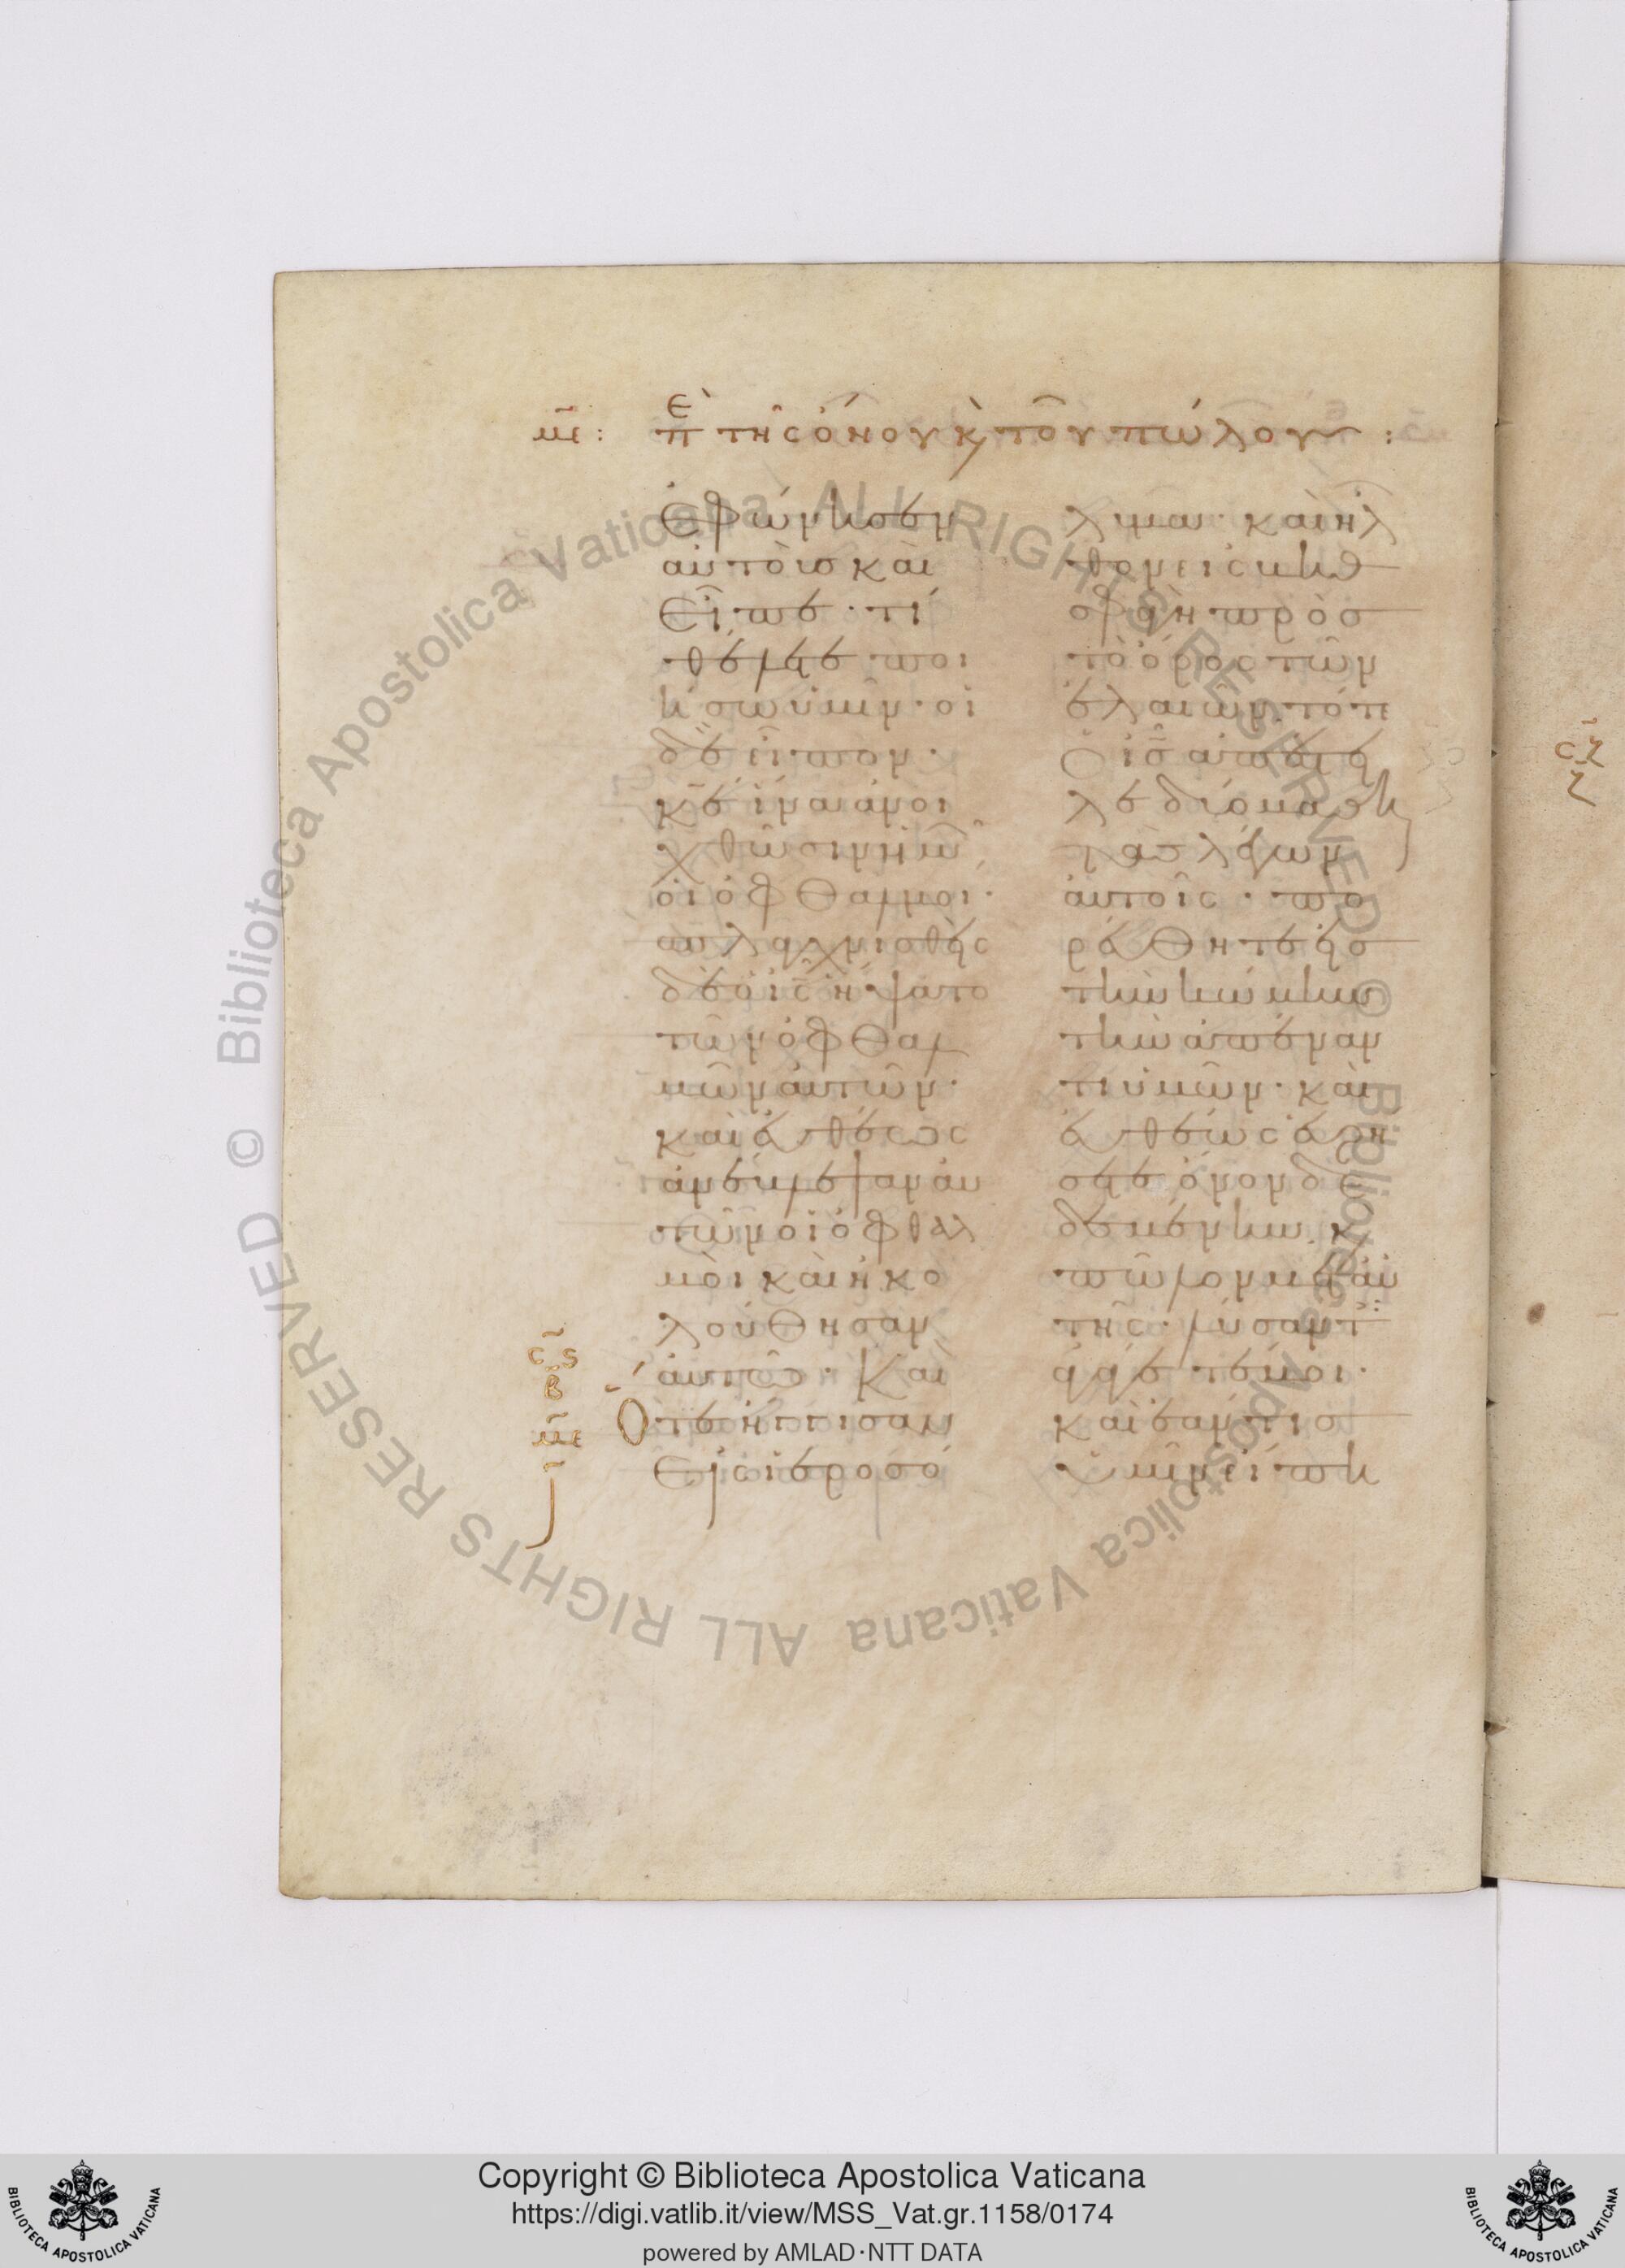 με: πε τῆς ὄνου κ τοῦ πώλου:
ἐφώνησεν
αὐτοὺσ καὶ
εἶπε· τί
θέλετε ποι
ήσω ὑμῖν· οἱ
δὲ εἶπον·
κε ἵνα ἀνοι
χθῶσιν ἡμῶ
οἱ ὀφθαλμοί·
σπλαγχνισθεὶς
δὲ ὁ ις ἥψατο
τῶν ὀφθαλ
μῶν αὐτῶν·
καὶ εὐθέως
ἀνέβλεψαν αὐ
τῶν οἱ ὀφθαλ
μοὶ καὶ ἠκο
λούθησαν
αὐτῶ· Καὶ
Ὅτε ἤγγισαν
εἰς ἱεροσό
λυμα· καὶ ἦλ
θον εἰς βηθ
σφαγὴ πρὸσ
τὸ ὄρος τῶν
ἐλαιῶν τότε
ὁ ις ἀπέστει
λε δύο μαθη
τὰσ λέγων
αὐτοῖς· πο
ρεύθητε εἰσ
τὴν κώμην
τὴν ἀπέναν
τι ὑμῶν· καὶ
εὐθέως εὑρή
σετε ὄνον δε
δεμένην κ
πῶλον μετ αὐ
τῆς· λύσαντ
ἀγάγετέ μοι·
καὶ ἐάν τισ
ὑμῖν εἴπη
ςς
β
με
Copyright © Biblioteca Apostolica Vaticana
https://digi.vatlib.it/view/MSS_Vat.gr.1158/0174
powered by AMLAD·NTT DATA
BIBLIOTECA APOSTOLICA VATICANA
BIBLIOTECA APOSTOLICA VATICANA
© Biblioteca Apostolica Vaticana ALL RIGHTS RESERVED
© Biblioteca Apostolica Vaticana ALL RIGHTS RESERVED